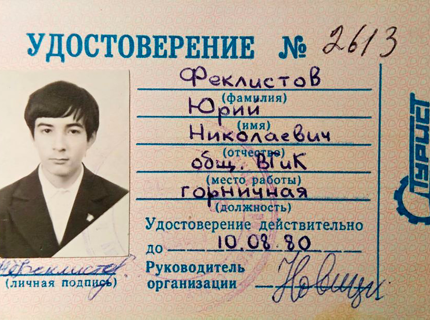 УДОСТОВЕРЕНИЕ № 2613
Феклистов
(фамилия)
Юрий
(имя)
Николаевич
(отчество)
общ. ВГиК
(место работы)
горничная
(должность)
Удостоверение действительно
до 10.08.80
Руководитель
организации
(личная подпись)
ТУРИСТ